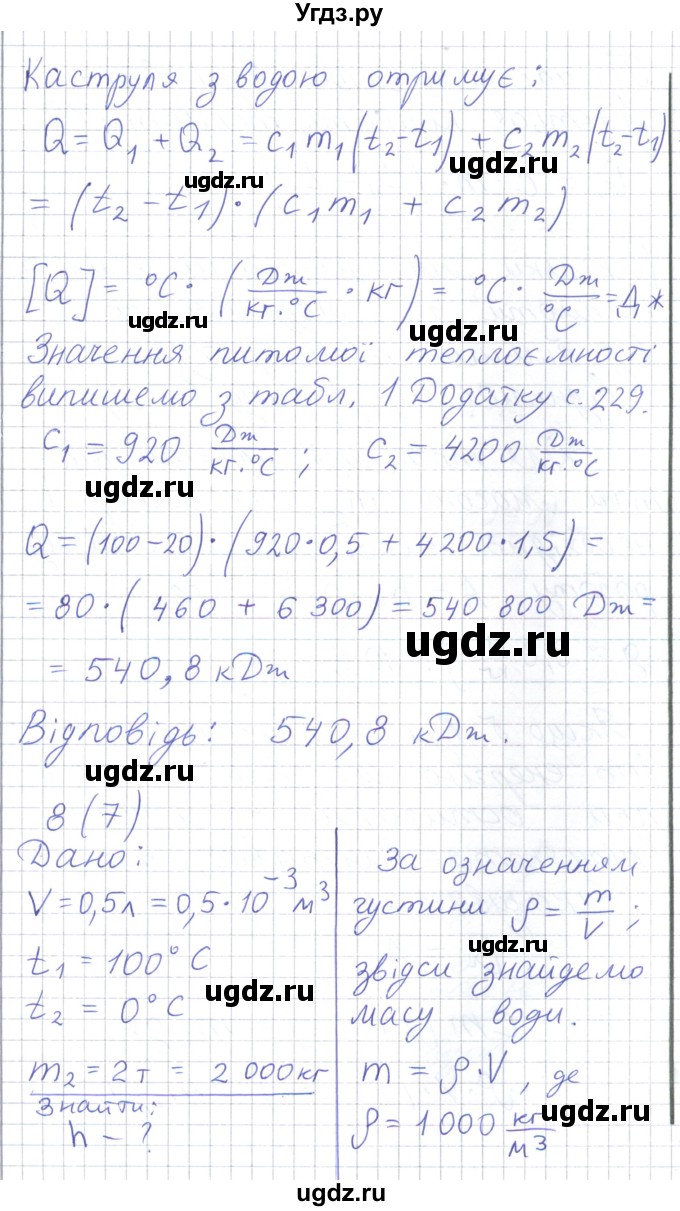 Угдз.ру
Каструля з водою отримує:
Q = Q₁ + Q₂ = c₁m₁(t₂-t₁) + c₂m₂(t₂-t₁)
ugdz.ru
ugdz.ru
= (t₂-t₁)·(c₁m₁ + c₂m₂)
[Q] = °C·(Дж/кг·°C · кг) = °C · Дж/°C = Дж
ugdz.ru
ugdz.ru
Значення питомої теплоємності
випишемо з табл. 1 Додатку с. 229.
c₁ = 920 Дж/кг·°C ; c₂ = 4200 Дж/кг·°C
ugdz.ru
Q = (100-20)·(920·0,5 + 4200·1,5) =
= 80·(460 + 6 300) = 540 800 Дж =
ugdz.ru
= 540,8 кДж
Відповідь: 540,8 кДж.
ugdz.ru
8 (7)
Дано:
V = 0,5л = 0,5·10⁻³ м³
t₁ = 100°C
t₂ = 0°C
ugdz.ru
m₂ = 2т = 2 000кг
Знайти:
h - ?
За означенням
густини ρ = m/V ;
ugdz.ru
звідси знайдемо
масу води.
m = ρ·V, де
ρ = 1000 кг/м³
ugdz.ru
ugdz.ru